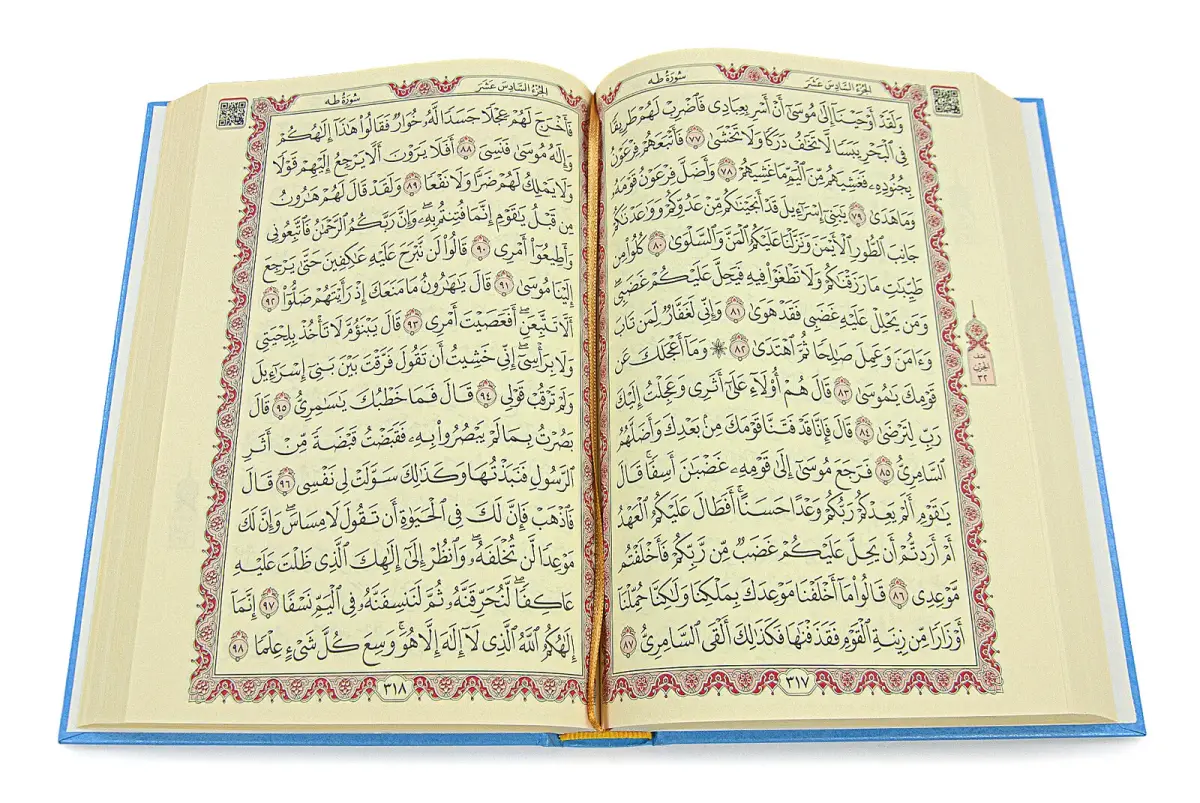 سُورَةُ طه
الجُزْءُ السَّادِسَ عَشَرَ
وَلَقَدْ أَوْحَيْنَآ إِلَىٰ مُوسَىٰٓ أَنْ أَسْرِ بِعِبَادِى فَٱضْرِبْ لَهُمْ طَرِيقًا
فِى ٱلْبَحْرِ يَبَسًا لَّا تَخَٰفُ دَرَكًا وَلَا تَخْشَىٰ ٧٧ فَأَتْبَعَهُمْ فِرْعَوْنُ
بِجُنُودِهِۦ فَغَشِيَهُم مِّنَ ٱلْيَمِّ مَا غَشِيَهُمْ ٧٨ وَأَضَلَّ فِرْعَوْنُ قَوْمَهُۥ
وَمَا هَدَىٰ ٧٩ يَٰبَنِىٓ إِسْرَٰٓءِيلَ قَدْ أَنجَيْنَٰكُم مِّنْ عَدُوِّكُمْ وَوَٰعَدْنَٰكُمْ
جَانِبَ ٱلطُّورِ ٱلْأَيْمَنَ وَنَزَّلْنَا عَلَيْكُمُ ٱلْمَنَّ وَٱلسَّلْوَىٰ ٨٠ كُلُوا۟ مِن
طَيِّبَٰتِ مَا رَزَقْنَٰكُمْ وَلَا تَطْغَوْا۟ فِيهِ فَيَحِلَّ عَلَيْكُمْ غَضَبِى
وَمَن يَحْلِلْ عَلَيْهِ غَضَبِى فَقَدْ هَوَىٰ ٨١ وَإِنِّى لَغَفَّارٌ لِّمَن تَابَ
وَءَامَنَ وَعَمِلَ صَٰلِحًا ثُمَّ ٱهْتَدَىٰ ٨٢ ۞ وَمَآ أَعْجَلَكَ عَن
قَوْمِكَ يَٰمُوسَىٰ ٨٣ قَالَ هُمْ أُو۟لَآءِ عَلَىٰٓ أَثَرِى وَعَجِلْتُ إِلَيْكَ
رَبِّ لِتَرْضَىٰ ٨٤ قَالَ فَإِنَّا قَدْ فَتَنَّا قَوْمَكَ مِنۢ بَعْدِكَ وَأَضَلَّهُمُ
ٱلسَّامِرِىُّ ٨٥ فَرَجَعَ مُوسَىٰٓ إِلَىٰ قَوْمِهِۦ غَضْبَٰنَ أَسِفًا ۚ قَالَ
يَٰقَوْمِ أَلَمْ يَعِدْكُمْ رَبُّكُمْ وَعْدًا حَسَنًا ۚ أَفَطَالَ عَلَيْكُمُ ٱلْعَهْدُ
أَمْ أَرَدتُّمْ أَن يَحِلَّ عَلَيْكُمْ غَضَبٌ مِّن رَّبِّكُمْ فَأَخْلَفْتُم
مَّوْعِدِى ٨٦ قَالُوا۟ مَآ أَخْلَفْنَا مَوْعِدَكَ بِمَلْكِنَا وَلَٰكِنَّا حُمِّلْنَآ
أَوْزَارًا مِّن زِينَةِ ٱلْقَوْمِ فَقَذَفْنَٰهَا فَكَذَٰلِكَ أَلْقَى ٱلسَّامِرِىُّ ٨٧
٣١٧
نصف
الحزب
٣٢
سُورَةُ طه
الجُزْءُ السَّادِسَ عَشَرَ
فَأَخْرَجَ لَهُمْ عِجْلًا جَسَدًا لَّهُۥ خُوَارٌ فَقَالُوا۟ هَٰذَآ إِلَٰهُكُمْ
وَإِلَٰهُ مُوسَىٰ فَنَسِىَ ٨٨ أَفَلَا يَرَوْنَ أَلَّا يَرْجِعُ إِلَيْهِمْ قَوْلًا
وَلَا يَمْلِكُ لَهُمْ ضَرًّا وَلَا نَفْعًا ٨٩ وَلَقَدْ قَالَ لَهُمْ هَٰرُونُ
مِن قَبْلُ يَٰقَوْمِ إِنَّمَا فُتِنتُم بِهِۦ ۖ وَإِنَّ رَبَّكُمُ ٱلرَّحْمَٰنُ فَٱتَّبِعُونِى
وَأَطِيعُوٓا۟ أَمْرِى ٩٠ قَالُوا۟ لَن نَّبْرَحَ عَلَيْهِ عَٰكِفِينَ حَتَّىٰ يَرْجِعَ
إِلَيْنَا مُوسَىٰ ٩١ قَالَ يَٰهَٰرُونُ مَا مَنَعَكَ إِذْ رَأَيْتَهُمْ ضَلُّوٓا۟ ٩٢
أَلَّا تَتَّبِعَنِ ۖ أَفَعَصَيْتَ أَمْرِى ٩٣ قَالَ يَبْنَؤُمَّ لَا تَأْخُذْ بِلِحْيَتِى
وَلَا بِرَأْسِىٓ ۖ إِنِّى خَشِيتُ أَن تَقُولَ فَرَّقْتَ بَيْنَ بَنِىٓ إِسْرَٰٓءِيلَ
وَلَمْ تَرْقُبْ قَوْلِى ٩٤ قَالَ فَمَا خَطْبُكَ يَٰسَٰمِرِىُّ ٩٥ قَالَ
بَصُرْتُ بِمَا لَمْ يَبْصُرُوا۟ بِهِۦ فَقَبَضْتُ قَبْضَةً مِّنْ أَثَرِ
ٱلرَّسُولِ فَنَبَذْتُهَا وَكَذَٰلِكَ سَوَّلَتْ لِى نَفْسِى ٩٦ قَالَ
فَٱذْهَبْ فَإِنَّ لَكَ فِى ٱلْحَيَوٰةِ أَن تَقُولَ لَا مِسَاسَ ۖ وَإِنَّ لَكَ
مَوْعِدًا لَّن تُخْلَفَهُۥ ۖ وَٱنظُرْ إِلَىٰٓ إِلَٰهِكَ ٱلَّذِى ظَلْتَ عَلَيْهِ
عَاكِفًا ۖ لَّنُحَرِّقَنَّهُۥ ثُمَّ لَنَنسِفَنَّهُۥ فِى ٱلْيَمِّ نَسْفًا ٩٧ إِنَّمَآ
إِلَٰهُكُمُ ٱللَّهُ ٱلَّذِى لَآ إِلَٰهَ إِلَّا هُوَ ۚ وَسِعَ كُلَّ شَىْءٍ عِلْمًا ٩٨
٣١٨